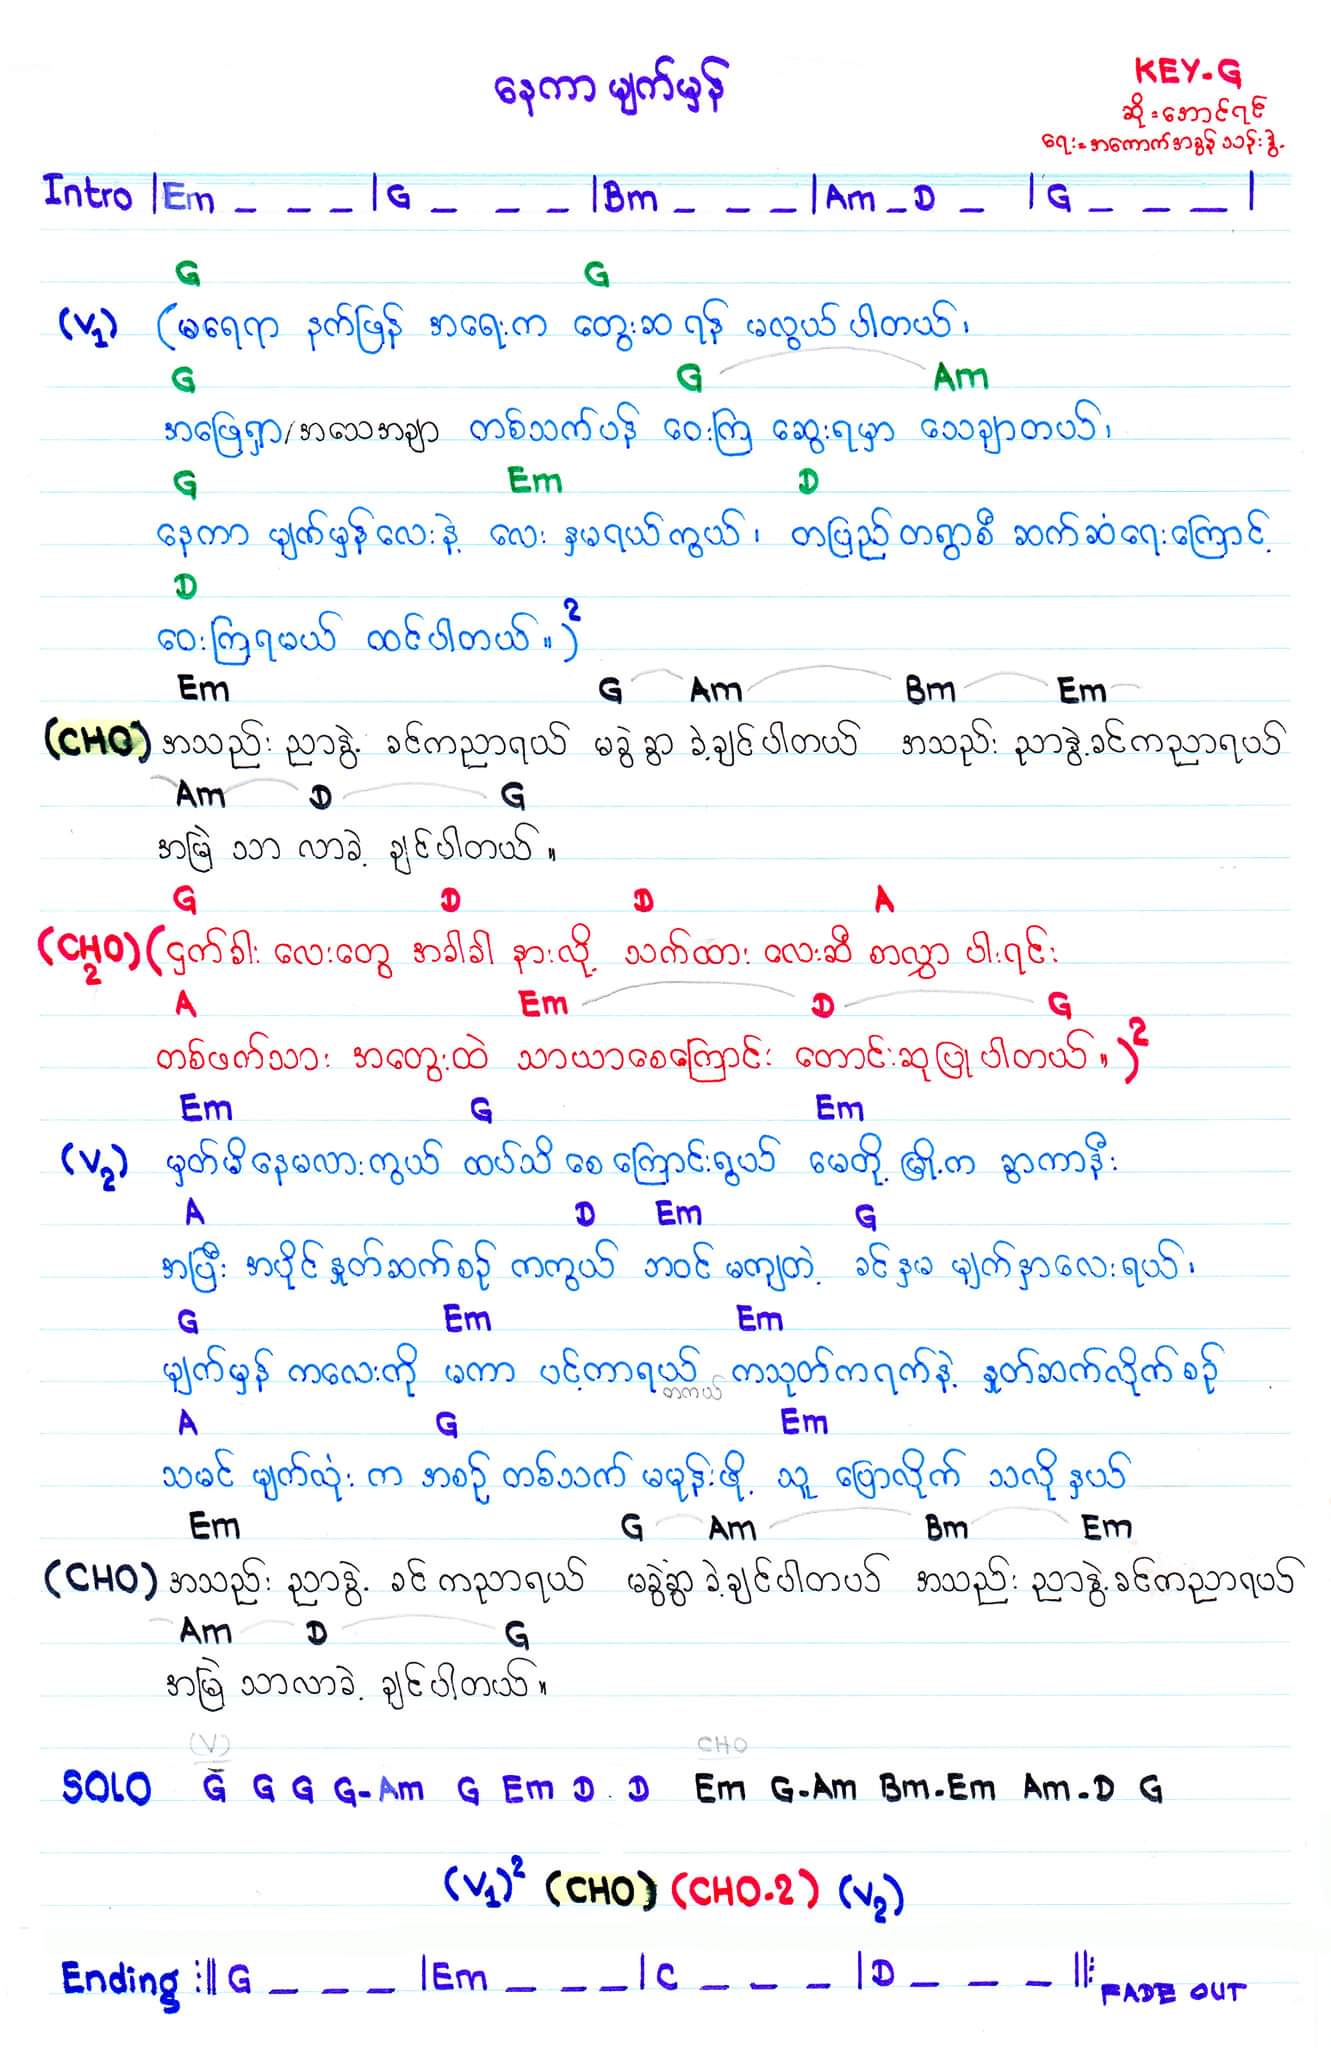 နေကာ မျက်မှန်
KEY-G
ဆို = အောင်ရင်
ရေး = အကောက်အခွန် သန်းနွဲ့
Intro |Em _ _ _ |G _ _ _ |Bm _ _ _ |Am _ D _ |G _ _ _ |
G G
(V1) (မရေရာ နက်ဖြန် အရေးက တွေးဆ ရန် မလွယ် ပါတယ်၊
G G Am
အဖြေရှာ/အသေအချာ တစ်သက်ပန် ဝေးကြ ဆွေးရမှာ သေချာတယ်၊
G Em D
နေကာ မျက်မှန်လေးနဲ့ လေး နှမရယ်ကွယ်၊ တပြည်တရွာစီ ဆက်ဆံရေးကြောင့်
D
ဝေးကြရမယ် ထင်ပါတယ်။)2
Em G Am Bm Em
(CHO) အသည်း ညာနွဲ့ ခင်ကညာရယ် မခွဲခွာ ခဲ့ချင်ပါတယ် အသည်း ညာနွဲ့ခင်ကညာရယ်
Am D G
အမြဲ သာ လာခဲ့ ချင်ပါတယ်။
G D D A
(CHO 2) (ငှက်ခါး လေးတွေ အခါခါ နားလို့ သက်ထား လေးဆီ စာလွှာ ပါးရင်း
A Em D G
တစ်ဖက်သား အတွေးထဲ သာယာစေကြောင်း တောင်းဆုပြု ပါတယ်။)2
Em G Em
(V2) မှတ်မိနေမလားကွယ် ထပ်သိ စေ ကြောင်းရွယ် မေတို့ မြို့က ခွာကာနီး
A D Em G
အပြီး အပိုင် နှုတ်ဆက်စဉ် ကကွယ် ဘဝင် မကျတဲ့ ခင်နှမ မျက်နှာလေးရယ်၊
G Em Em
မျက်မှန် ကလေးကို မကာ ပင့်ကာရယ် ကသုတ်ကရက်နဲ့ နှုတ်ဆက်လိုက်စဉ်
တကယ်
A G Em
သမင် မျက်လုံး က အစဉ် တစ်သက် မမုန်းဖို့ သူ ပြောလိုက် သလို နှယ်
Em G Am Bm Em
(CHO) အသည်း ညာနွဲ့ ခင် ကညာရယ် မခွဲခွာ ခဲ့ချင်ပါတယ် အသည်း ညာနွဲ့ခင်ကညာရယ်
Am D G
အမြဲ သာလာခဲ့ ချင်ပါတယ်။
(V) CHO
SOLO G G G G-Am G Em D . D Em G-Am Bm-Em Am-D G
(V1)2 (CHO) (CHO-2) (V2)
Ending :||G _ _ _ |Em _ _ _ |C _ _ _ |D _ _ _ ||: FADE OUT